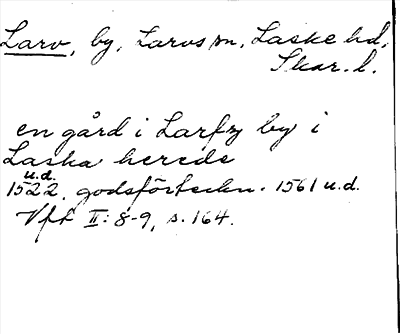 Larv, by, Larvs sn, Laske hd,
Skar. l.
en gård i Larffz by i
Laska herede
u.d.
1522. godsförteckn. 1561 u.d.
Vff II: 8-9, s. 164.